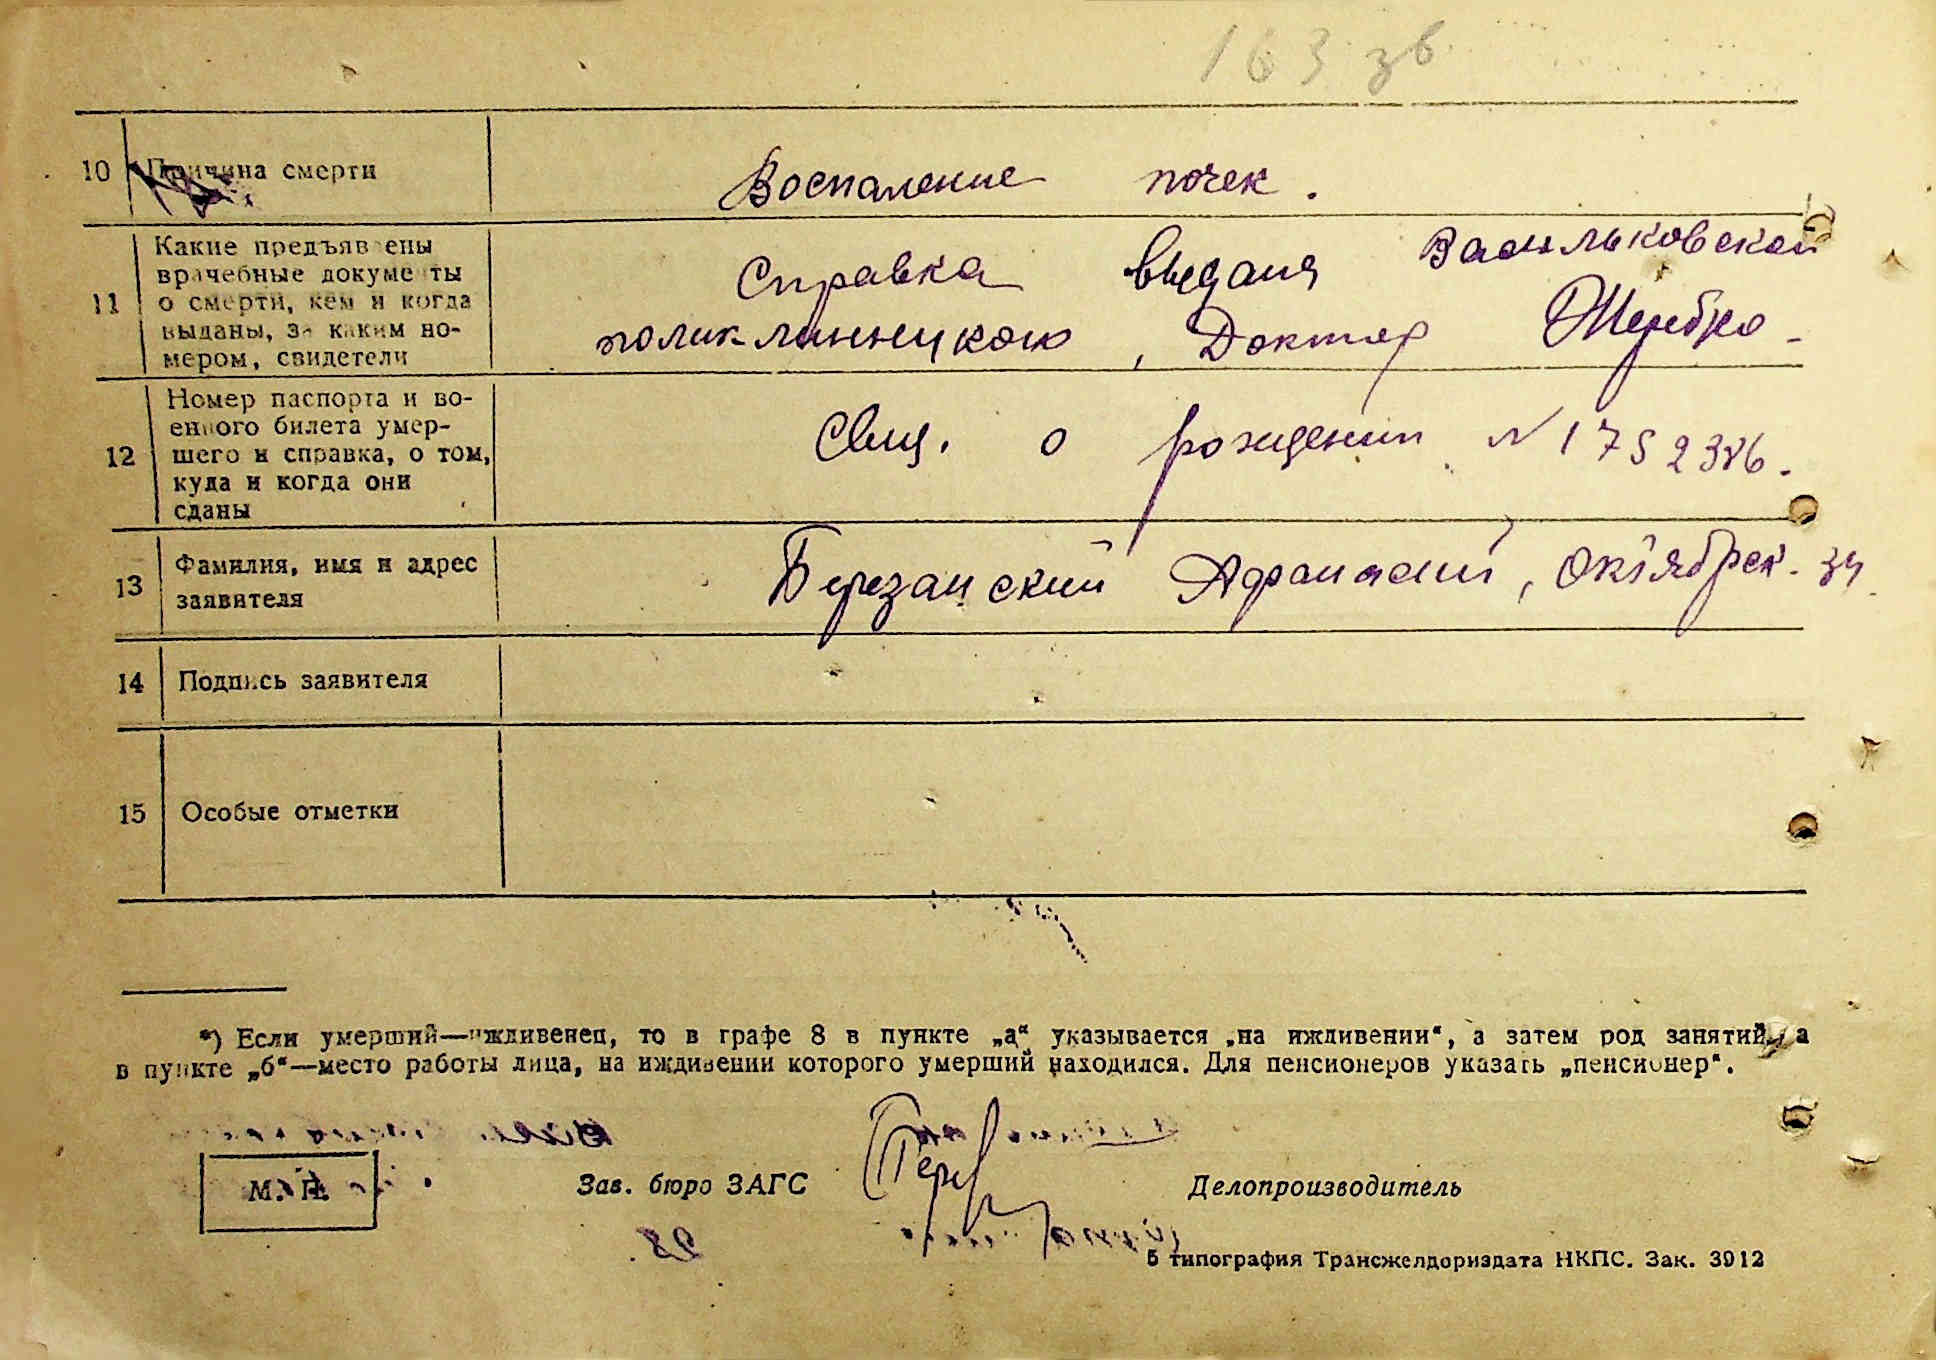 163 зв
10 Причина смерти
Воспаление почек.
11 Какие предъявлены
врачебные документы
о смерти, кем и когда
выданы, за каким но-
мером, свидетели
Справка выдана Васильковской
поликлинницкою, Доктор
12 Номер паспорта и во-
енного билета умер-
шего и справка, о том,
куда и когда они
сданы
Свид. о рождении N 1752386.
13 Фамилия, имя и адрес
заявителя
Березанский Афанасий, Октябрск. 34
14 Подпись заявителя
15 Особые отметки
*) Если умерший—иждивенец, то в графе 8 в пункте „а“ указывается „на иждивении“, а затем род занятий, а
в пункте „б“—место работы лица, на иждивении которого умерший находился. Для пенсионеров указать „пенсионер“.
М. П.
Зав. бюро ЗАГС
Делопроизводитель
5 типография Трансжелдориздата НКПС. Зак. 3912